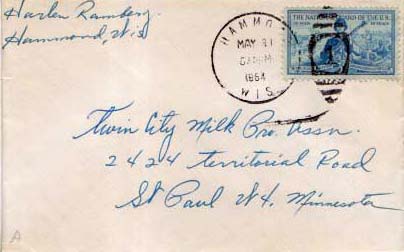 Harlen Ramberg.
Hammond, Wis
HAMMO
MAY 21
M
1964
WIS.
THE NATIONAL GUARD OF THE U.S.
Twin City Milk Pro. Assn.
2424 Territorial Road
St Paul W4, Minnesota
A